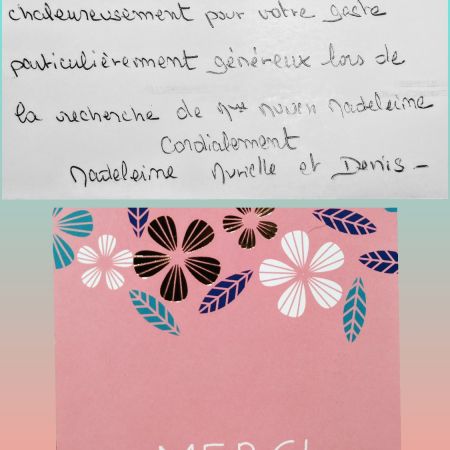 chaleureusement pour votre geste
particulièrement généreux lors de
la recherche de Madeleine
Cordialement
Madeleine Murielle et Denis -
MERCI